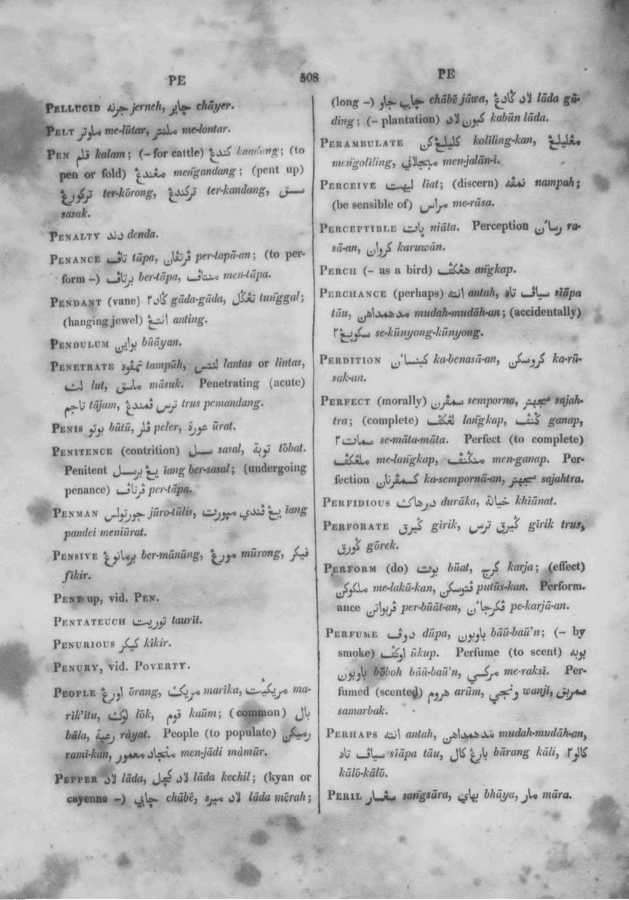 PE
508
PE
PELLUCID جرنه jerneh, چاير chāyer.
PELT ملوتر me-lūtar, ملنتر me-lontar.
PEN قلم kalam; (– for cattle) كندڠ kandang; (to
pen or fold) مڠندڠ mengandang; (pent up)
تركورڠ ter-kōrong, تركندڠ ter-kandang, سسق
sasak.
PENALTY دند denda.
PENANCE تاڤ tāpa, ڤرتڤان per-tapā-an; (to per-
form –) برتاڤ ber-tāpa, منتاڤ men-tāpa.
PENDANT (vane) ٢ڬاد gāda-gāda, تڠڬل tunggal;
(hanging jewel) انتڠ anting.
PENDULUM بواين būāyan.
PENETRATE tampūh, لنتس lantas or lintas,
لت lut, ماسق māsuk. Penetrating (acute)
تاجم tājam, ترس ڤمندڠ trus pemandang.
PENIS بوتو būtū, ڤلر peler, عورة ūrat.
PENITENCE (contrition) سسل sasal, توبة tōbat.
Penitent يڠ برسسل iang ber-sasal; (undergoing
penance) ڤرتاڤ per-tāpa.
PENMAN جورتولس jūro-tūlis, يڠ ڤندي ميورت iang
pandei meniūrat.
PENSIVE برمانوڠ ber-mānūng, مورڠ mūrong, فيكر
fikir.
PENT up, vid. PEN.
PENTATEUCH توريت taurīt.
PENURIOUS كيكر kīkir.
PENURY, vid. POVERTY.
PEOPLE اورڠ ōrang, مريك marīka, مريكيت ma-
rīk'ītu, لوك lōk, قوم kaūm; (common) بال
bāla, رعية rāyat. People (to populate) رميكن
ramī-kan, منجاد معمور men-jādi māmūr.
PEPPER لاد lāda, لاد كچل lāda kechil; (kyan or
cayenne –) چابي chābē, لاد ميره lāda mērah;
(long –) چابي جاو chābē jāwa, لاد ڬادڠ lāda gā-
ding; (– plantation) كبون لاد kabūn lāda.
PERAMBULATE كليلڠكن kolīling-kan, مڠليلڠ
mengolīling, منجلاني men-jalān-i.
PERCEIVE ليهت līat; (discern) نمڤه nampah;
(be sensible of) مراس me-rāsa.
PERCEPTIBLE پات niāta. Perception رسان ra-
sā-an, كروان karuwān.
PERCH (– as a bird) هڠكڤ angkap.
PERCHANCE (perhaps) انته antah, سياڤ تاه sīāpa
tāu, مدهمداهن mudah-mudāh-an; (accidentally)
٢سكويڠ se-kūnyong-kūnyong.
PERDITION كبنسان ka-benasā-an, كروسكن ka-rū-
sak-an.
PERFECT (morally) سمڤرن semporna, سجهتر sajah-
tra; (complete) لڠكڤ langkap, ڬنڤ ganap,
٢سمات se-māta-māta. Perfect (to complete)
ملڠكڤ me-langkap, منڬنڤ men-ganap. Per-
fection كسمڤرنان ka-sempornā-an, سجهتر sajahtra.
PERFIDIOUS درهاك durāka, خيانة khīānat.
PERFORATE ڬيرق girik, ڬيرق ترس girik trus,
ڬورق gōrek.
PERFORM (do) بوت būat, كرج karja; (effect)
ملكوكن me-lakū-kan, ڤتوسكن putūs-kan. Perform-
ance ڤربواتن per-būāt-an, ڤكرجان pe-karjā-an.
PERFUME دوڤ dūpa, باوبون bāū-baū'n; (– by
smoke) اوكڤ ūkup. Perfume (to scent) بوبه
باوبون bōboh bāū-baū'n, مركسي me-raksi. Per-
fumed (scented) هروم arūm, ونجي wanji, سمربق
samarbak.
PERHAPS انته antah, مدهمداهن mudah-mudāh-an,
سياڤ تاه sīāpa tāu, بارڠ كال bārang kāli, ٢كالو
kālō-kālō.
PERIL سڠسار sangsāra, بهاي bhāya, مار māra.